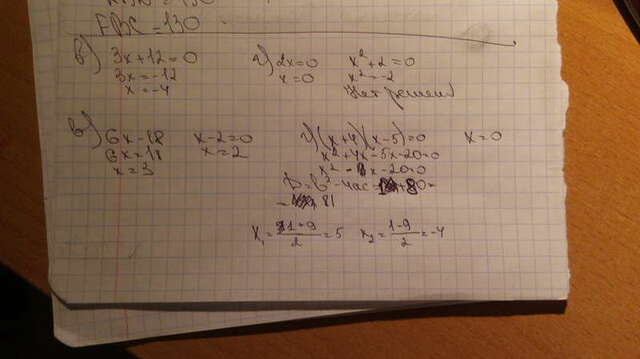 FBC = 130
б) 3x+12=0
3x=-12
x=-4
а) 2x=0
x=0
x²+2=0
x²=-2
Нет решений
в) 6x-18
6x=18
x=3
x-2=0
x=2
г) (x+4)(x-5)=0
x²+4x-5x-20=0
x²-x-20=0
D=b²-4ac
81
x=0
x₁=1+9/2=5
x₂=1-9/2=-4